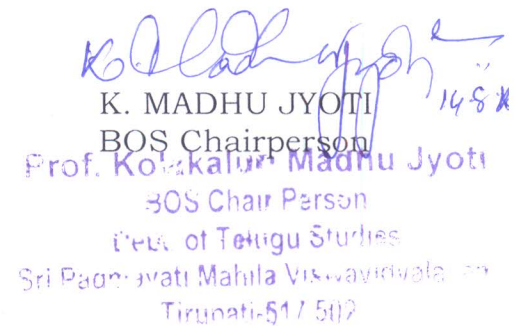 K. Madhu Jyoti
14-8
K. MADHU JYOTI
BOS Chairperson
Prof. Kolakaluri Madhu Jyoti
BOS Chair Person
Dept. of Telugu Studies
Sri Padmavati Mahila Visvavidyalayam
Tirupati-517 502